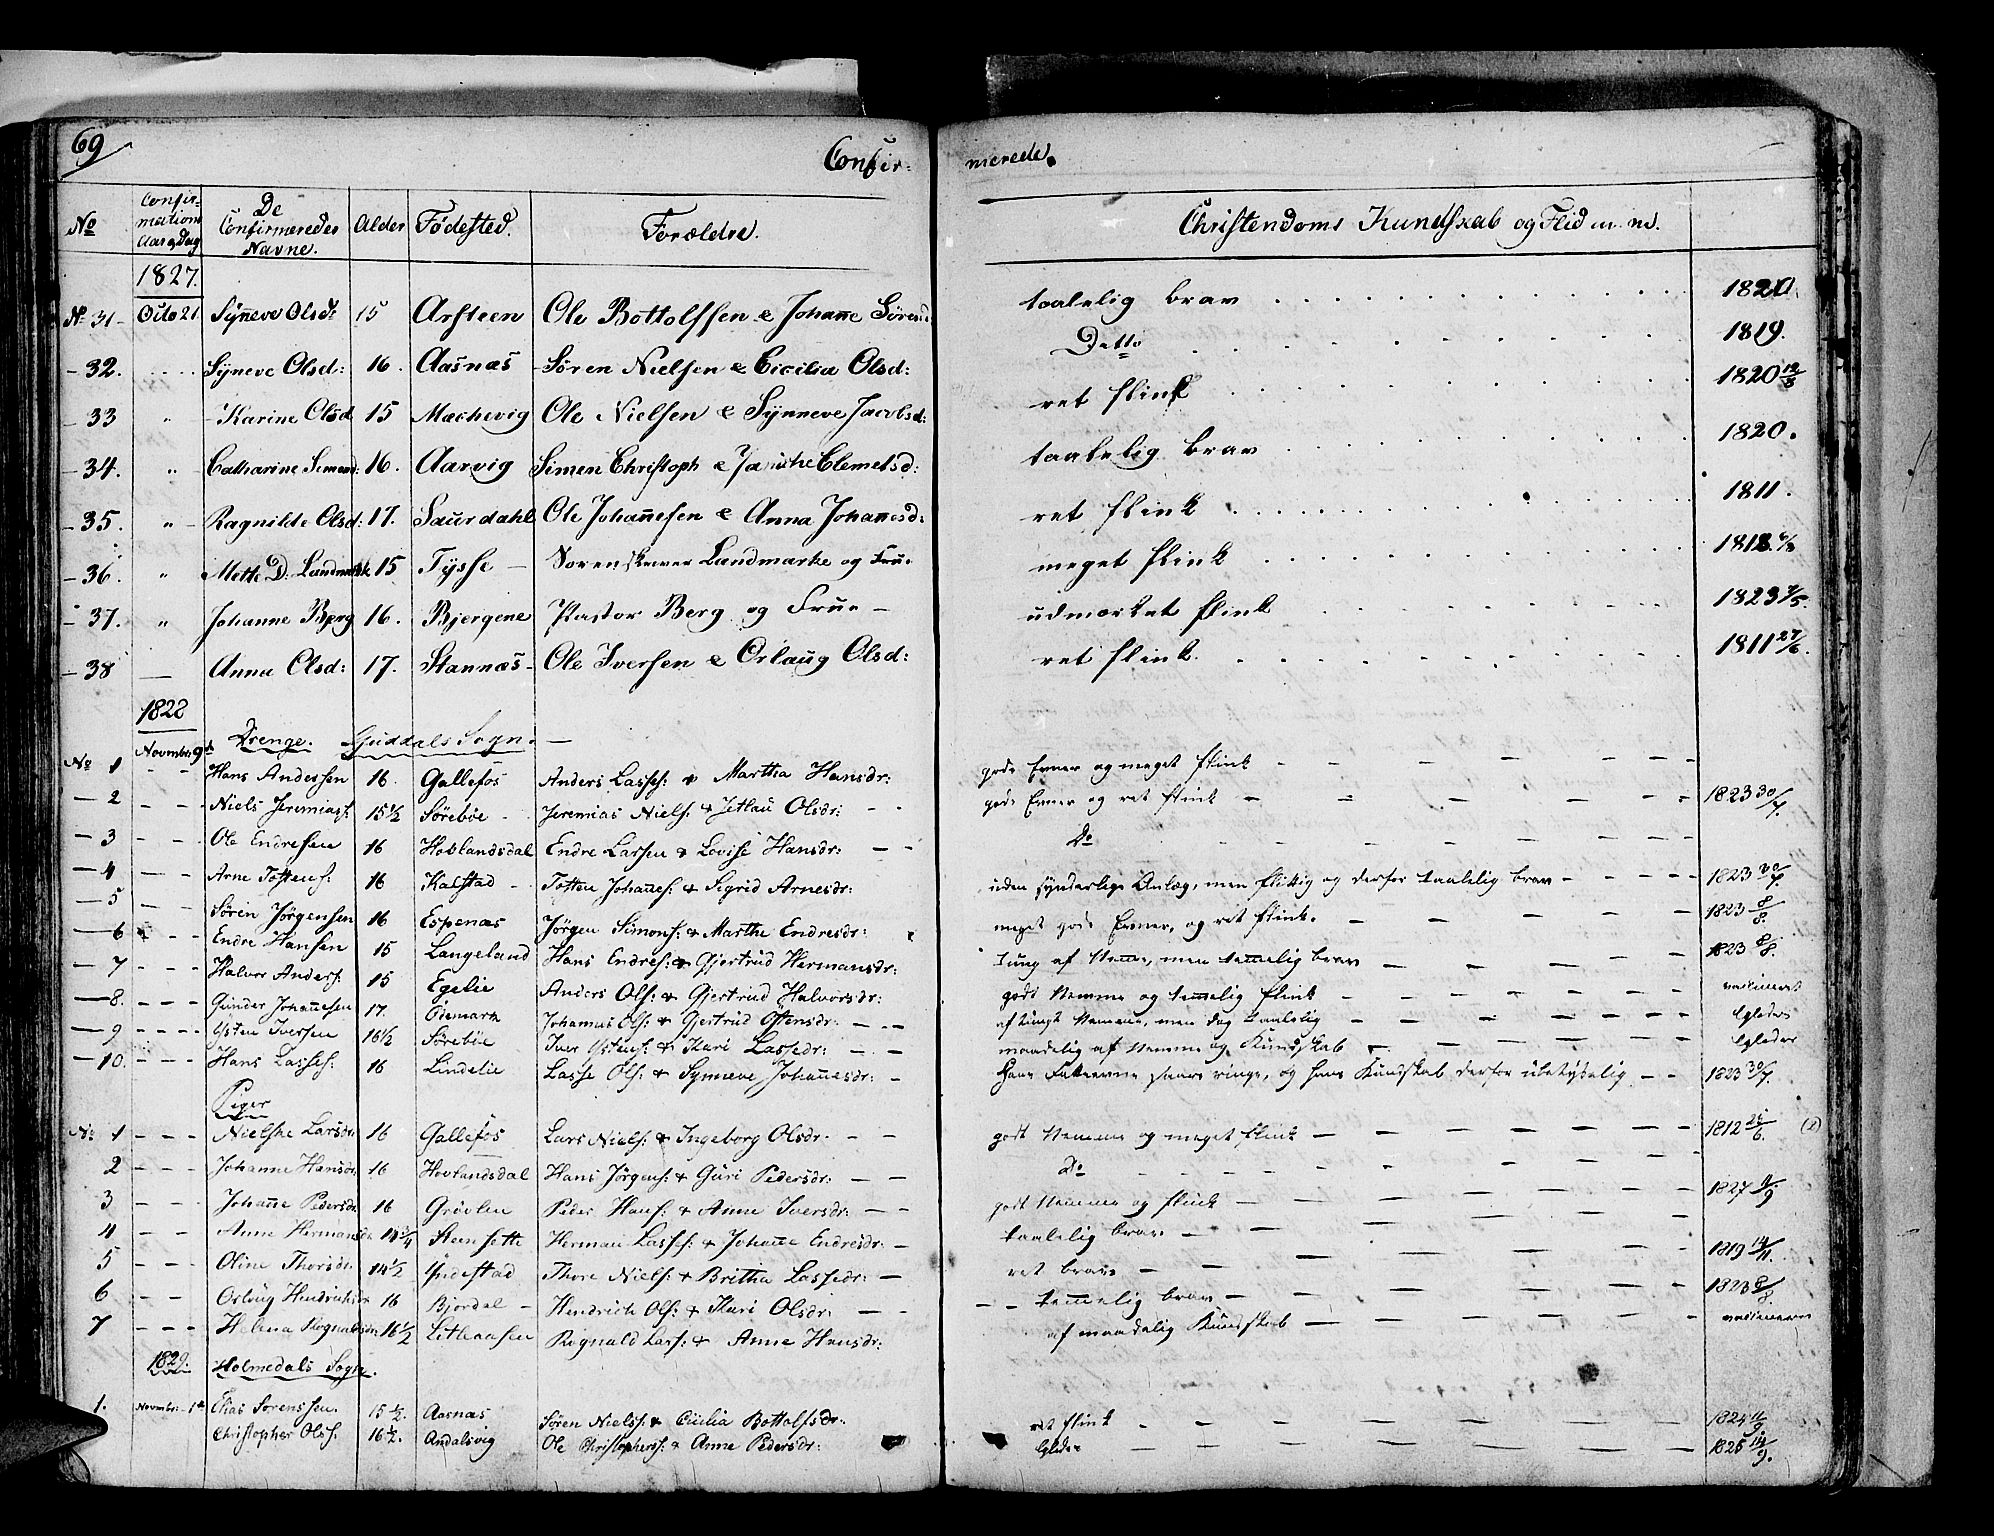 69
Confir-
merede.
No
Confir-
mations
Aar og Dag
De
Confirmeredes
Navne.
Alder
Fødested.
Forældre.
Christendoms Kundskab og Flid m.m.
1827.
No 31 - Octo 21 Synneve Olsd: 15 Arsteen Ole Bottolfsen & Johanne Sørensd: taalelig brav
- 32. Synneve Olsd: 16. Aasnæs Søren Nielsen & Cicilia Olsd: Detto 1819.
- 33 " Karine Olsd 15 Mæchevig Ole Nielsen & Synneve Jacobsd: ret flink 1820
- 34. " Catharine Simond: 16. Aarvig Simen Christoph & Clemetsd: taalelig brav 1820.
- 35. " Ragnilde Olsd: 17. Saurdahl Ole Johannesen & Anna Johannesd: ret flink 1811.
- 36. " Mette D. Landmark 15 Tysse - Sorenskriver Landmarke og Frue meget flink
- 37. " Johanne Berg 16. Bjergene Pastor Berg og Frue - udmærket flink 1823
- 38 - Anna Olsd: 17. Stannæs - Ole Iversen & Orlaug Olsd: ret flink. 1811 27/6.
1828
Novembr 9de Drenge. Guddals Sogn. -
No 1 - - Hans Andersen 16. Gallefos Anders Lasses: & Martha Hansdr: gode Evner og meget flink
- 2 - - Niels Jeremiasf: 15 1/2 Sørebøe Jeremias Niels: & Jetlau Olsdr: gode Evner og ret flink 1823 30/7.
- 3 - - Ole Endresen 16 Hovlandsdal Endre Larsen & Lovise Hansdr: Do
- 4 - - Arne Tostens: 16 Kalstad Tosten Johannes: & Sigrid Arnesdr: uden synderlige Anlæg, men flittig og derfor taalelig brav 1823 30/7.
- 5 - - Søren Jørgensen 16 Espenæs Jørgen Simons: & Marthe Endresdr: meget gode Evner, og ret flink. 1823 8/8.
- 6 - - Endre Hansen 15 Langeland Hans Endres: & Gjertrud Hermansdr: tung af Nemme, men temmelig brav 1823 8/8.
- 7 - - - Halvor Anders: 15 Egelie Anders Ols: & Gjertrud Halvorsdr: godt Nemme og temmelig flink
- 8. - - - Gunder Johannesen 17. Ødemark Johannes Ols: & Gjertrud Ostensdr: af tungt Nemme, men dog taalelig
- 9 - - - Ysten Iversen 16 1/2 Sørebøe Iver Ystens: & Kari Lassedr: maadelig af Nemme og Kundskab
- 10. - - - Hans Lasses: 16 Lindelie Lasse Ols: & Synneve Johannesdr: Hans Evnerne saare ringe, og hans Kundskab derfor ubetydelig 1823 30/7.
Piger
No 1 - - - Nielshe Larsdr: 16 Gallefos Lars Niels: & Ingeborg Olsdr: godt Nemme og meget flink 1812 26/6.
2 - - - Johanne Hansdr 16 Hovlandsdal Hans Jørgens: & Guri Pedersdr: Do
3 - - - Johanne Pedersdr 16 Grøvlen Peder Hans: & Anne Iversdr: godt Nemme og flink 1827 9/9
4 - - Anne Hermansdr 14 3/4 Steensette Herman Lasses: & Johanne Endresdr: taalelig brav
5 - - Oline Thorsdr 14 1/2 Yndestad Thore Niels: & Britha Lassedr: ret brav 1819 14/11.
6 - - Orlaug Hendrichsdr 16 Bjordal Hendrich Ols: & Kari Olsdr: temmelig brav 1823 8/8.
7 - - - Helena Rognaldsdr: 16 1/2 Lithaasen Rognald Lars: & Anne Hansdr: af maadelig Kundskab
1829. Holmedals Sogn.
1. Novembr: 1ste Elias Sørenssen. 15 1/2. Aasnæs Søren Niels: & Cicilia Bottolfsdr: ret flink 1824 11/9.
Christopher Ols: 16 1/2. Andalsvig Ole Christophers: & Anne Pedersdr: ligeledes 1825 14/9.